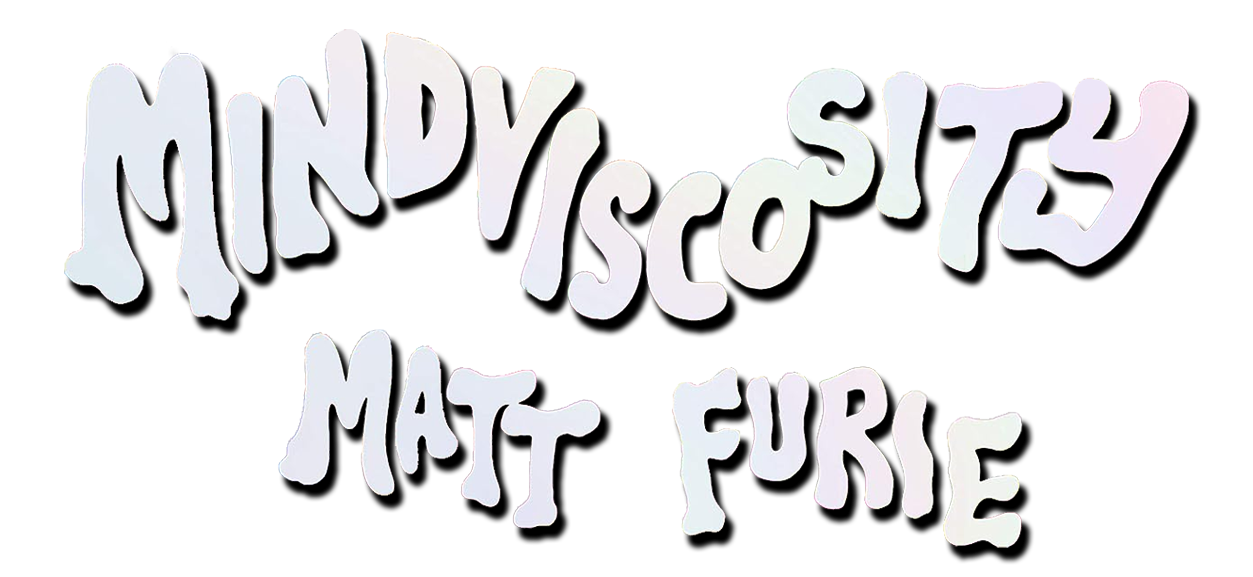 MINDVISCOSITY
MATT FURIE